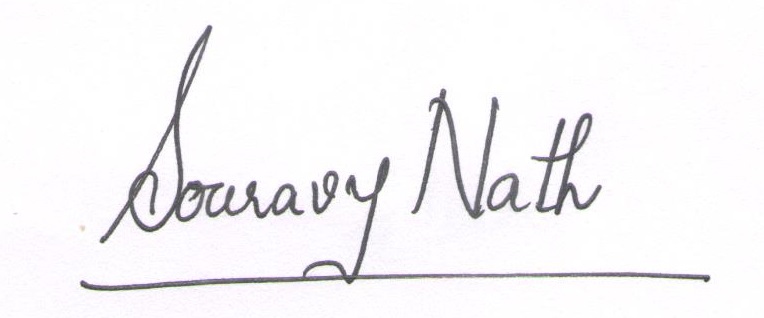 Souravy Nath